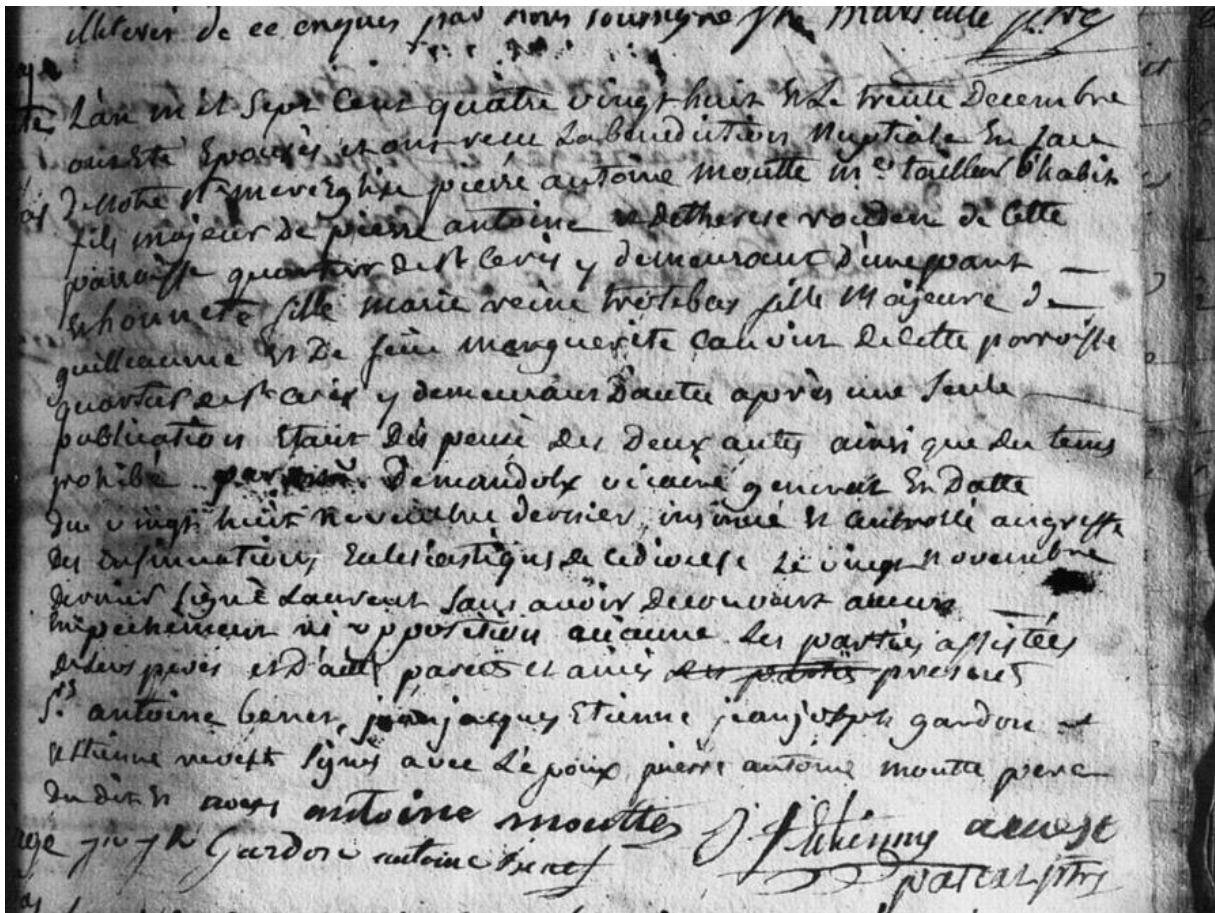 de ce enques par nous soussigné Marseille ptre
L'an mil sept cent quatre vingt huit et le trente Decembre
ont Eté Epousés et ont recu La benediction Nuptiale En face
De notre Ste mere Eglise pierre antoine moutte me tailleur d'habit
fils majeur De pierre antoine et de therese de cette
parroisse quartier de st Ceris y demeurant D'une part
et honnete fille Marie reine trotebas fille Majeure De
guilleaume et De feue marguerite Cauvin de cette parroisse
quartier de st Ceris y demeurant D'autre après une seule
publication Etant Dispensé des Deux autres ainsi que du tems
prohibé par Demandolx vicaire general En Datte
du vingt huit Novembre dernier, insinué et Controllé au greffe
des insinuations Eclesiastiques de ce diocese Le vingt Novembre
dernier signé Laurent sans avoir Decouvert aucun
Empechement ni opposition aucune Les parties assistées
de leurs peres et d'aut parens et amis des parties presents
Srs antoine jean jacques Etienne jean joseph gardon et
Etienne revest signés avec L'epoux pierre antoine moutte pere
du dit et antoine mouttes J J Etienne a revest
jn jh Gardon antoine ptre